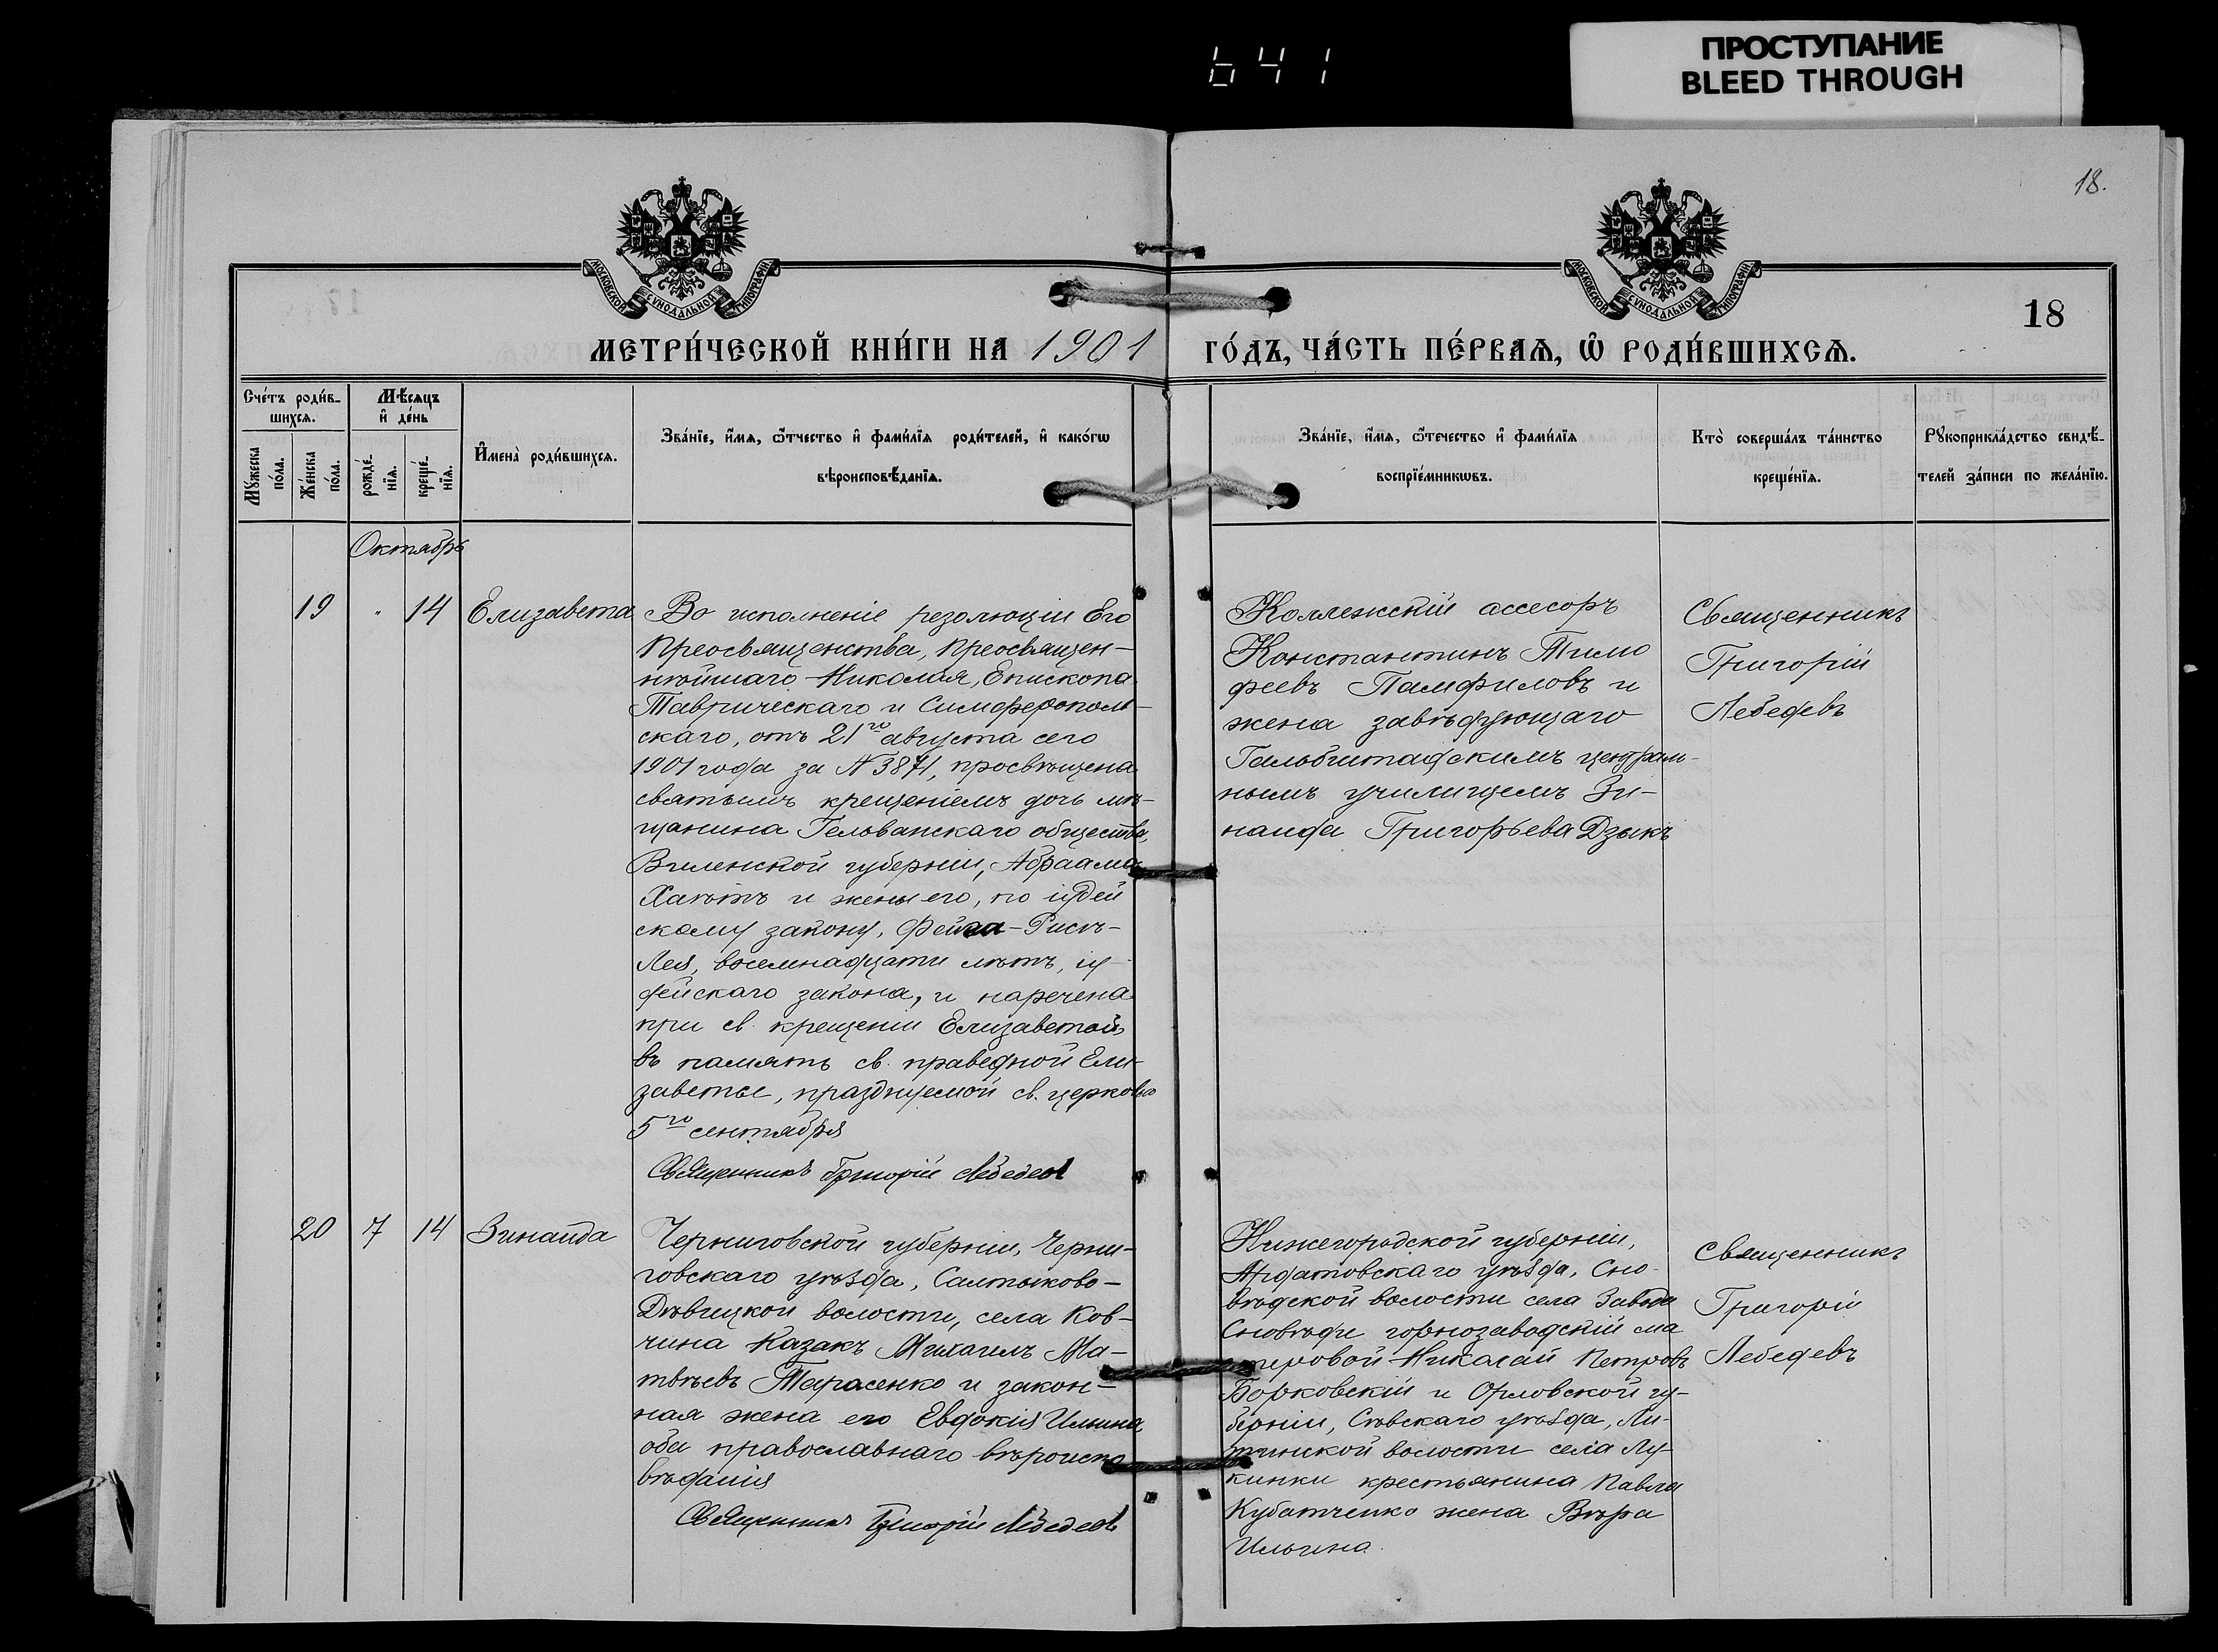 641
ПРОСТУПАНИЕ
BLEED THROUGH
18.
18
МОСКОВСКОЙ СѴНОДАЛЬНОЙ ТИПОГРАФІИ
МОСКОВСКОЙ СѴНОДАЛЬНОЙ ТИПОГРАФІИ
МЕТРИ́ЧЕСКОЙ КНИ́ГИ НА 1901 ГО́ДЪ, ЧА́СТЬ ПЕ́РВАѦ, Ѽ РОДИ́ВШИХСѦ.
Сче́тъ роди́в-
шихсѧ.
Мꙋжеска по́ла.
Же́нска по́ла.
Мѣ́сѧцъ
и҆ де́нь
рожде́-
нїѧ.
креще́-
нїѧ.
И҆мена̀ роди́вшихсѧ.
Зва́нїе, и҆́мѧ, ѻ҆́тчество и҆ фами́лїѧ роди́телей, и҆ како́гѡ
вѣроисповѣ́данїѧ.
Зва́нїе, и҆́мѧ, ѻ҆́течество и҆ фами́лїѧ
воспрїе́мникѡвъ.
Кто̀ соверша́лъ та́инство
креще́нїѧ.
Рꙋкоприкла́дство свидѣ́-
телей за́писи по жела́нїю.
Октябрь
19 " 14 Елизавета
Во исполненіе резолюціи Его
Преосвященства, Преосвящен-
нѣйшаго Николая, Епископа
Таврическаго и Симферополь-
скаго, отъ 21го августа сего
1901 года за № 3871, просвѣщена
святымъ крещеніемъ дочь мѣ-
щанина Гельванскаго общества,
Виленской губерніи, Абраама
Хаютъ и жены его, по іудей
скому закону, Фейга-Рись-
Лея, восемнадцати лѣтъ, іу-
дейскаго закона, и наречена
при св. крещеніи Елизаветой,
въ память св. праведной Ели-
заветы, празднуемой св. церковью
5го сентября
Священникъ Григорій Лебедевъ
Коллежскій ассесоръ
Константинъ Тимо
феевъ Памфиловъ и
жена завѣдующаго
Гальбштадскимъ централь-
нымъ училищемъ Зи-
наида Григорьева Дзыкъ
Священникъ
Григорій
Лебедевъ
20 7 14 Зинаида
Черниговской губерніи, Черни-
говскаго уѣзда, Салтыково-
Дѣвицкой волости, села Ков-
чина казакъ Михаилъ Ма-
твѣевъ Тарасенко и закон-
ная жена его Евдокія Ильина,
оба православнаго вѣроиспо
вѣданія
Священникъ Григорій Лебедевъ
Нижегородской губерніи,
Ардатовскаго уѣзда, Сно-
вѣдской волости села Завода
Сновѣди горнозаводскій ма
стеровой Николай Петровъ
Борковскій и Орловской гу-
берніи, Сѣвскаго уѣзда, Ли-
тижской волости села Лу-
кинки крестьянина Павла
Кубатченко жена Вѣра
Ильина.
Священникъ
Григорій
Лебедевъ